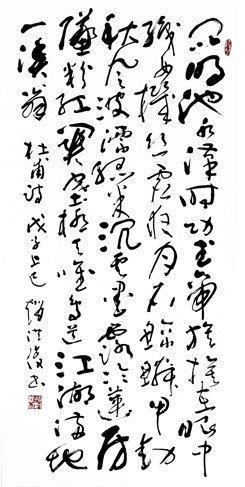 昆明池水漢時功武帝旌旗在眼中
織女機絲虛夜月石鯨鱗甲動
秋風波漂菰米沉雲黑露冷蓮房
墜粉紅關塞極天唯鳥道江湖滿地
一漁翁
杜甫詩 戊子上巳 书